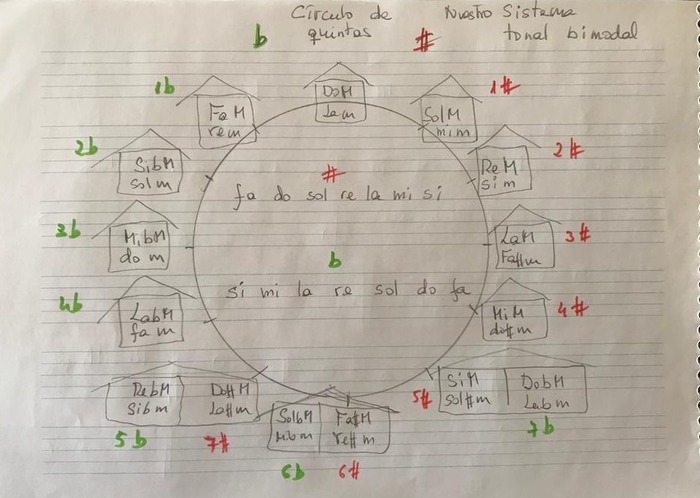 b
Círculo de
quintas
#
Nuestro Sistema
tonal bimodal
DoM
la m
1#
SolM
mi m
2#
ReM
si m
3#
LaM
Fa#m
4#
MiM
do#m
5#
SiM
sol#m
DobM
Labm
7b
Fa#M
re#m
6#
SolbM
Mibm
6b
Do#M
La#m
7#
RebM
Sibm
5b
4b
LabM
fa m
3b
MibM
do m
2b
SibM
sol m
1b
FaM
re m
#
fa do sol re la mi si
b
si mi la re sol do fa